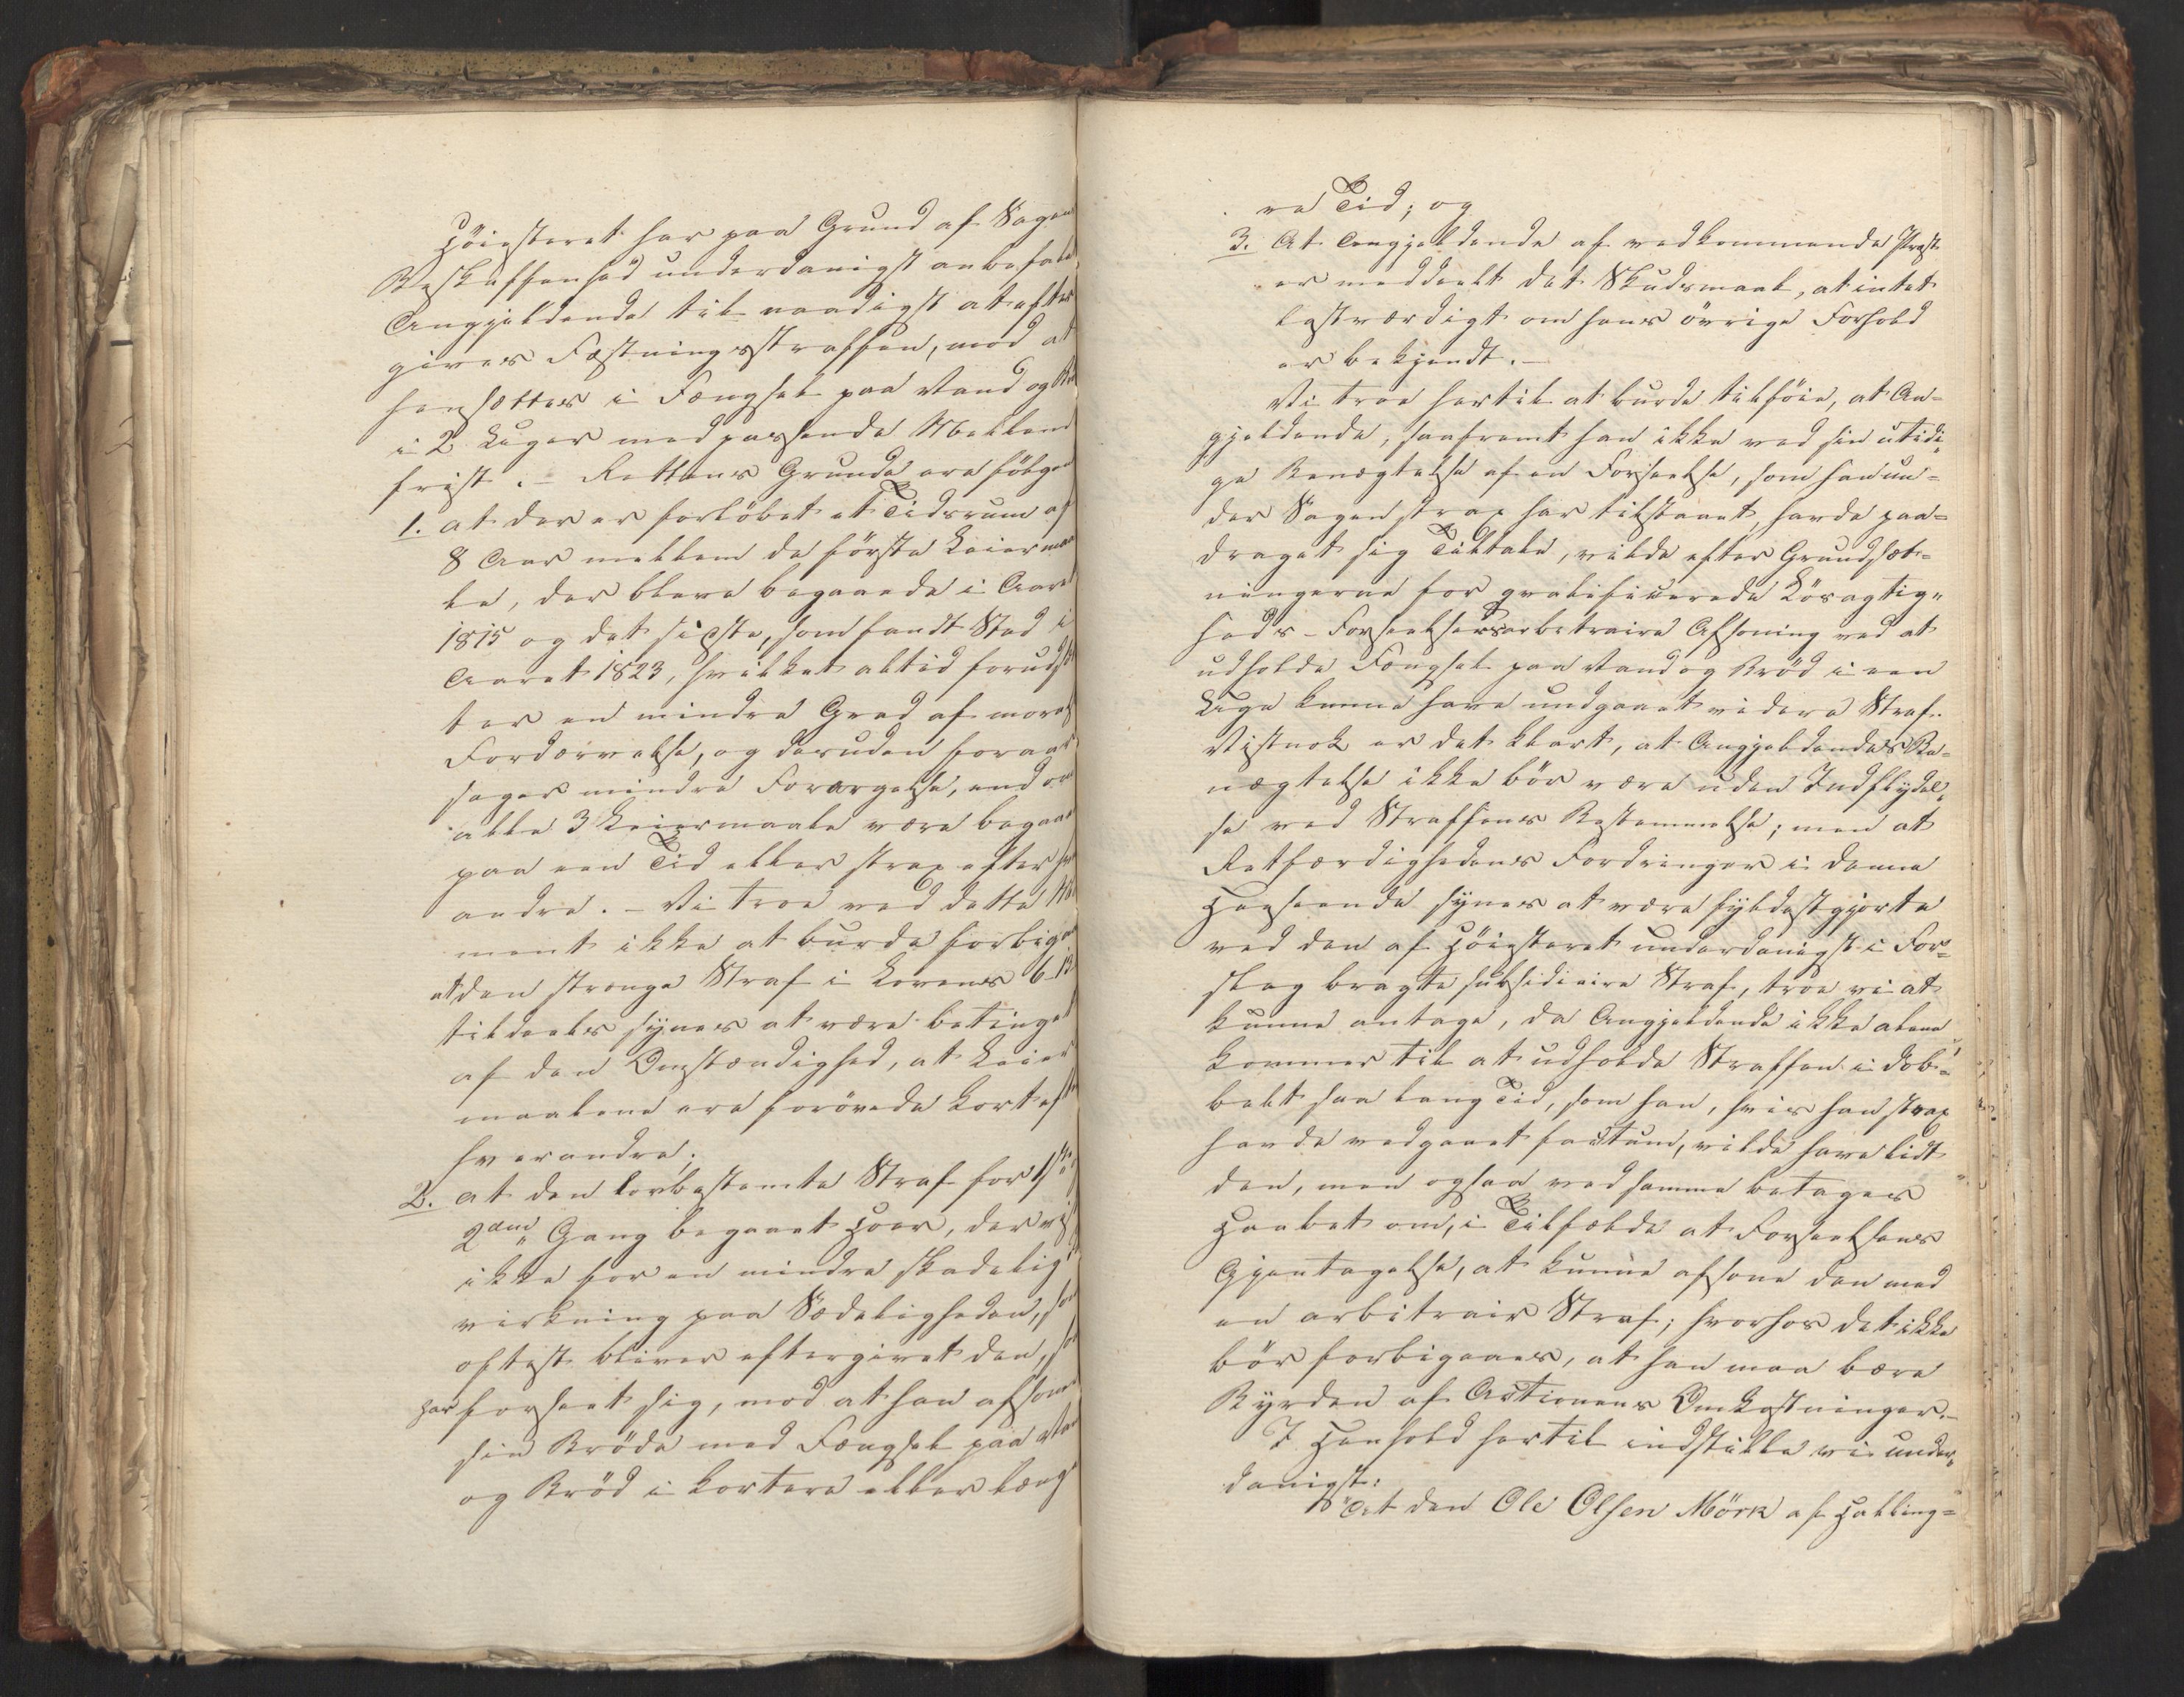 Höiesteret har paa Grund af Sagens
Beskaffenhed underdanigst anbefalet
Angjeldende til naadigst at efter
gives Fæstningsstraffen, mod at
hensættes i Fængsel paa Vand og Brö
i 2 Uger med passende Mellem
frist. – Rettens Grunde ere fölgen
1. at der er forlöbet et Tidsrum af
8 Aar mellem de förste Leiermaa
le, der bleve begaaede i Aaret
1815 og det sidste, som fandt Sted i
Aaret 1823, hvilket altid forudsæt
ter en mindre Grad af moralsk
Fordærvelse, og desuden foraar
sager mindre Forargelse, end om
alle 3 Leiermaale vare begaaede
paa een Tid eller strax efter hver
andre. – Vi troe ved dette Mo
ment ikke at burde forbigaae
at den strenge Straf i Lovens 6–13
tildeels synes at være betinget
af den Omstændighed, at Leier
maalene ere forövede kort efter
hverandre;
2. at den lovbestemte Straf for 1ste og
2den Gang begaaet Hoer, der vist
ikke har en mindre skadelig Ind
virkning paa Sædeligheden, som
oftest bliver eftergivet den, som
har forseet sig, mod at han afsoner
sin Bröde med Fængsel paa Vand
og Bröd i kortere eller læng
re Tid; og
3. At Angjeldende af vedkommende Præst
er meddeelt det Skudsmaal, at intet
lastværdigt om hans övrige Forhold
er bekjendt. –
Vi troe hertil at burde tilföie, at An=
gjeldende, saafremt han ikke ved sin utidi
ge Benægtelse af en Forseelse, som han un=
der Sagen strax har tilstaaet, havde paa=
draget sig Tiltale, vilde efter Grundsæt=
ningerne for qvalificerede Lösagtig=
heds-Forseelsers arbitraire Afsoning ved at
udholde Fængsel paa Vand og Bröd i een
Uge kunne have undgaaet videre Straf.
Vistnok er det klart, at Angjeldendes Be=
nægtelse ikke bör være uden Indflydel=
se ved Straffens Bestemmelse; men at
Retfærdighedens Fordringer i denne
Henseende synes at være fyldestgjorte
ved den af Höiesteret underdanigst i For=
slag bragte subsidiaire Straf, troe vi at
kunne antage, da Angjeldende ikke alene
kommer til at udholde Straffen i dob=
belt saa lang Tid, som han, hvis han strax
havde vedgaaet factum, vilde have lidt
den, men ogsaa ved samme betages
Haabet om, i Tilfælde at Forseelsens
Gjentagelse, at kunne afsone den med
en arbitrair Straf; hvorhos det ikke
bör forbigaaes, at han maa bære
Byrden af Actionens Omkostninger. –
I Henhold hertil indstille vi under=
danigst:
At den Ole Olsen Mörk af Halling=